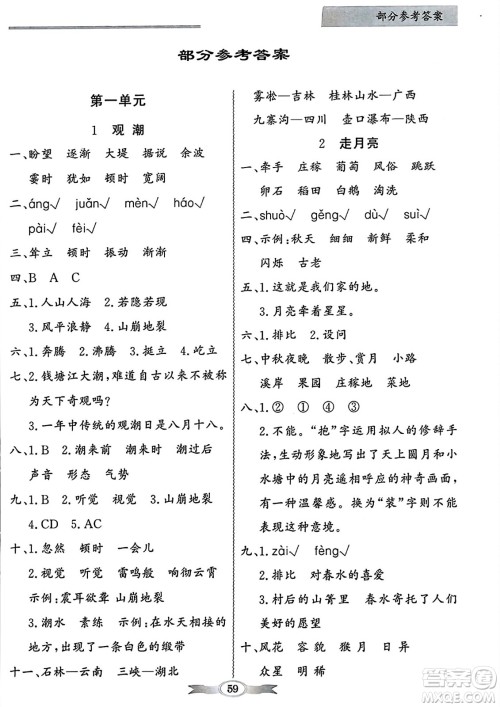 部分参考答案
部分参考答案
第一单元
1 观 潮
一、盼望 逐渐 大堤 据说 余波
霎时 犹如 顿时 宽阔
二、áng√ juǎn√ mèn√ háo√
pài√
三、耸立 顿时 振动 渐渐
四、B A C
五、1.人山人海 2.若隐若现
3.风平浪静 4.山崩地裂
六、1.奔腾 2.沸腾 3.挺立 4.屹立
七、2.钱塘江大潮,难道自古以来不被称为
天下奇观吗?
3.一年中传统的观潮日是八月十八。
八、1.B 2.潮来前 潮来时 潮来后
声音 形态 气势
九、1.B 2.听觉 视觉 3.山崩地裂
4.CD 5.AC
十、1.忽然 顿时 一会儿
2.视觉 听觉 雷鸣般 响彻云霄
示例:震耳欲聋 山崩地裂
3.潮水 素练 示例:在水天相接的
地方出现了一条白色的缎带
十一、石林—云南 三峡—湖北
雾凇—吉林 桂林山水—广西
九寨沟—四川 壶口瀑布—陕西
2 走月亮
一、牵手 庄稼 葡萄 风俗 跳跃
卵石 稻田 白鹅 淘洗
二、shuò√ gěng√ dù√ suì√
四、示例:秋天 细细 新鲜 柔和
闪烁 古老
五、1.这就是我们的地。
3.月亮牵着星星。
六、1.排比 2.设问
七、中秋夜晚 散步、赏月 小路
溪岸 果园 庄稼地 菜地
八、1.① ④ ③
2.不能。“抱”字运用拟人的修辞手
法,生动形象地写出了天上圆月和小
水塘中的月亮遥相呼应的神奇画面,
有一种温馨感。换为“装”字则不能
表达这种意境。
九、1.zài√ fèng√
2.排比 对春水的喜爱
3.村后的山箐里 春水寄予了人们
美好的愿望
十、风花 容貌 猴月 日异
众星 明稀
59